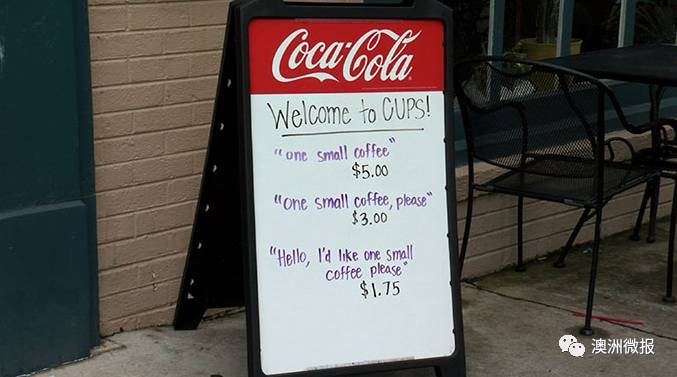 Coca-Cola
Welcome to CUPS!
"one small coffee"
$5.00
"One small coffee, please"
$3.00
"Hello, I'd like one small
coffee please"
$1.75
澳洲微报